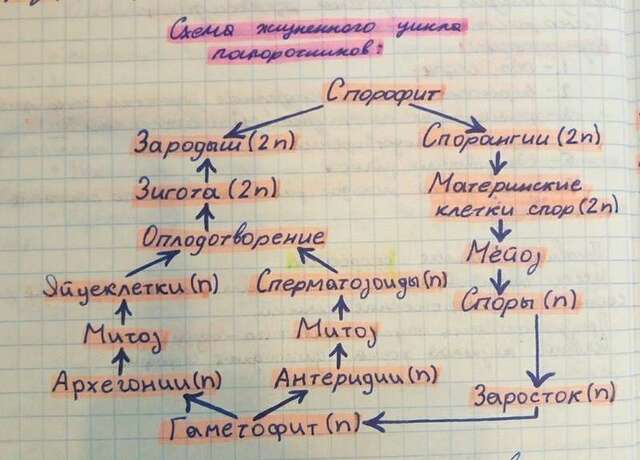 Схема жизненного цикла
папоротников:
Спорофит
Зародыш (2n)
Спорангии (2n)
Зигота (2n)
Материнские
клетки спор (2n)
Оплодотворение
Мейоз
Яйцеклетки (n)
Сперматозоиды (n)
Споры (n)
Митоз
Митоз
Архегонии (n)
Антеридии (n)
Заросток (n)
Гаметофит (n)